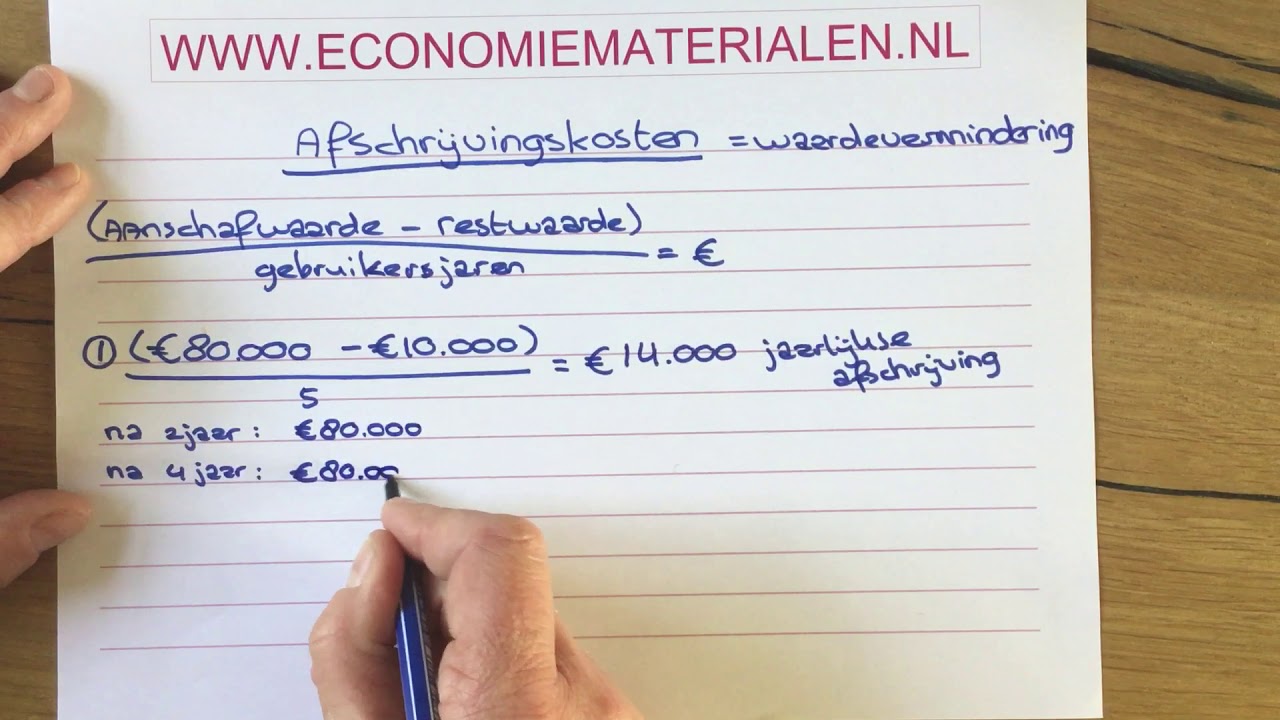 WWW.ECONOMIEMATERIALEN.NL
Afschrijvingskosten = waardevermindering
(AAnschafwaarde - restwaarde)
gebruikersjaren
= €
① (€80.000 - €10.000)
5
= €14.000 jaarlijkse
afschrijving
na 2jaar : €80.000
na 4 jaar : €80.00